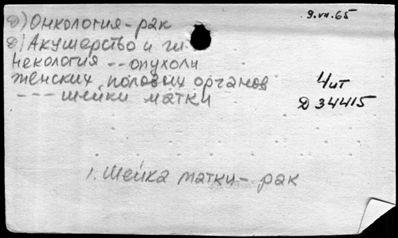 д) Онкология - рак
9.VII.65
д) Акушерство и ги-
некология -- опухоли
женских половых органов
--- шейки матки
Чит
Д 34415
1. Шейка матки - рак